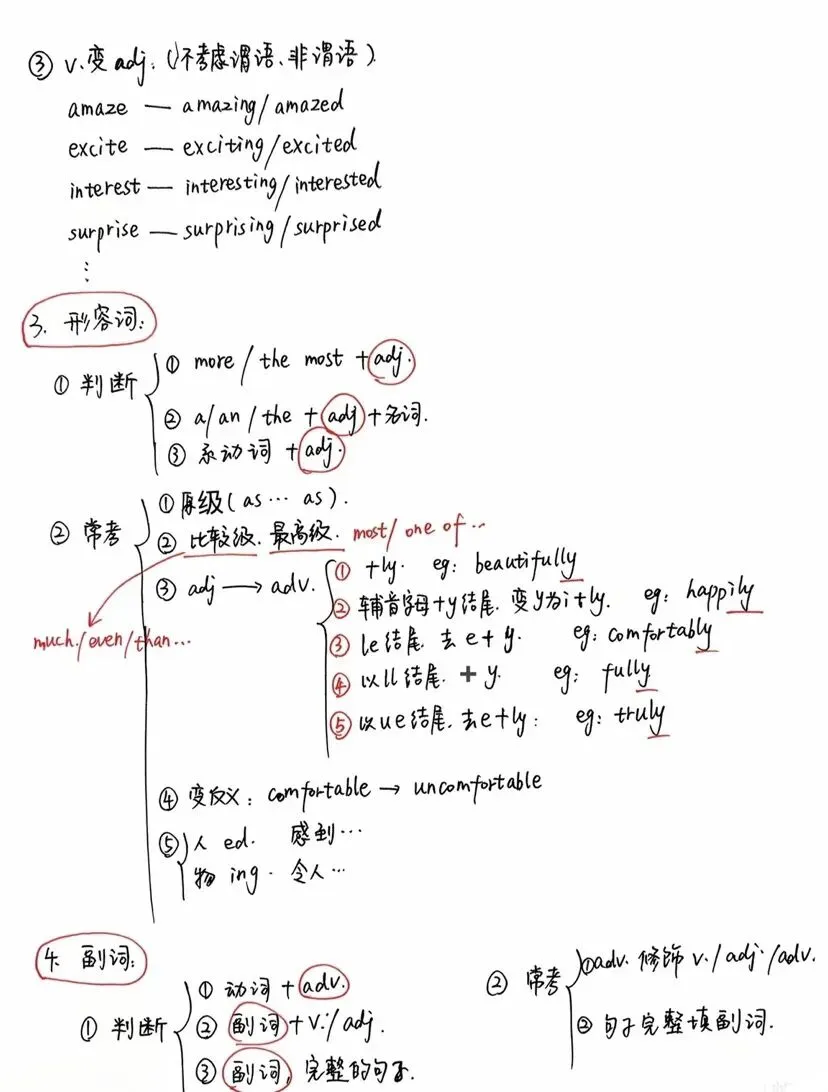 ③ v.变adj. (不考虑谓语、非谓语)
amaze — amazing/amazed
excite — exciting/excited
interest — interesting/interested
surprise — surprising/surprised
⋮
3. 形容词:
① 判断
① more/the most + adj.
② a/an/the + adj + 名词.
③ 系动词 + adj.
② 常考
① 原级(as… as).
② 比较级. 最高级. most/one of…
much/even/than…
③ adj → adv.
① +ly. eg: beautifully
② 辅音字母+y结尾. 变y为i+ly. eg: happily
③ le结尾. 去e+y. eg: comfortably
④ 以ll结尾. +y. eg: fully
⑤ 以ue结尾. 去e+ly: eg: truly
④ 变反义: comfortable → uncomfortable
⑤ 人 ed. 感到…
物 ing. 令人…
4. 副词:
① 判断
① 动词 + adv.
② 副词 + v./adj.
③ 副词, 完整的句子.
② 常考
① adv. 修饰 v./adj./adv.
② 句子完整填副词.